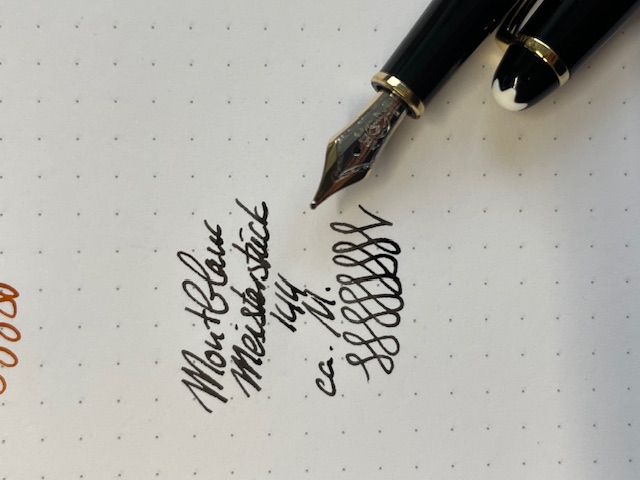 Montblanc
Meisterstück
144
ca. M.